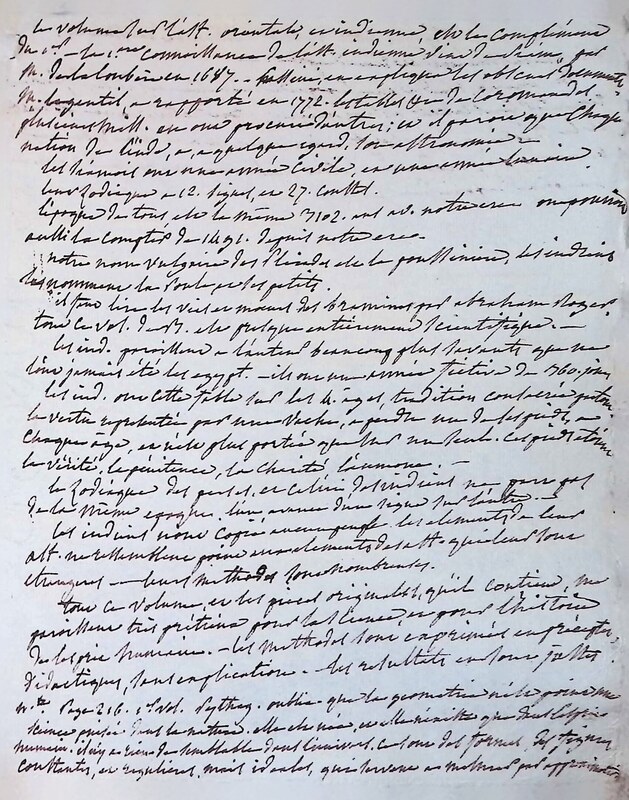 le volume sur l'ast. orientale, et indienne, est le complément
du 1er — la 1ere connaissance de l'ast. indienne vient de Siam, par
M. de la Loubere en 1687. — Cassini, en explique les obscurs documents
M. legentil, a rapporté en 1772. les tables de Coromandel
plusieurs miss. en ont procuré d'autres; et il paroit que chaque
nation de l'inde, a, a quelque egard, son astronomie —
les siamois ont une année civile, et une année lunaire.
leur zodiaque a 12. signes, et 27. constell.
l'époque de tous est la même 3102. ans av. notre ere on pourroit
aussi la compter de 1491. depuis notre ere —
notre nom vulgaire des Pleiades est la poussiniere, les indiens
les nomment la Poule et ses petits.
il faut lire les vies et mœurs des bramines par abraham Roger
tout ce vol. de B. est presque entièrement scientifique. —
les ind. paroissent a l'auteur beaucoup plus savants que ne
l'ont jamais été les egypt. — ils ont une année fictive de 360. jours
les ind. ont cette fable sur les 4. ages tradition consacrée
la vertu representée par une vache, a perdu un de ses pieds, a
chaque age, et n'est plus portée que sur un seul. Ces pieds étoient
la vérité, la pénitence, la charité l'aumone. —
le zodiaque des perses, et celui des indiens ne part pas
de la même epoque. l'un avance d'un signe sur l'autre —
les indiens n'ont copié aucun peuple. les elements de leur
ast. ne ressemblent point aux elements des ast. qui leur sont
etrangers — leurs methodes sont nombreuses.
tout ce volume, et les pieces originales, qu'il contient, me
paroissent très prétieux pour la science, et pour l'histoire
de l'esprit humain. — les methodes sont exprimées en préceptes
didactiques, sans explication. — les resultats en sont justes.
nte. Page 216. 1er vol. Bythag. oublie que la geometrie n'est point une
science puisée dans la nature. elle est née, et elle n'existe que dans l'esprit
humain. il n'y a rien de semblable dans l'univers. ce sont des formes, des figures
constantes, et regulieres, mais ideales, qui servent a mesurer par approximation